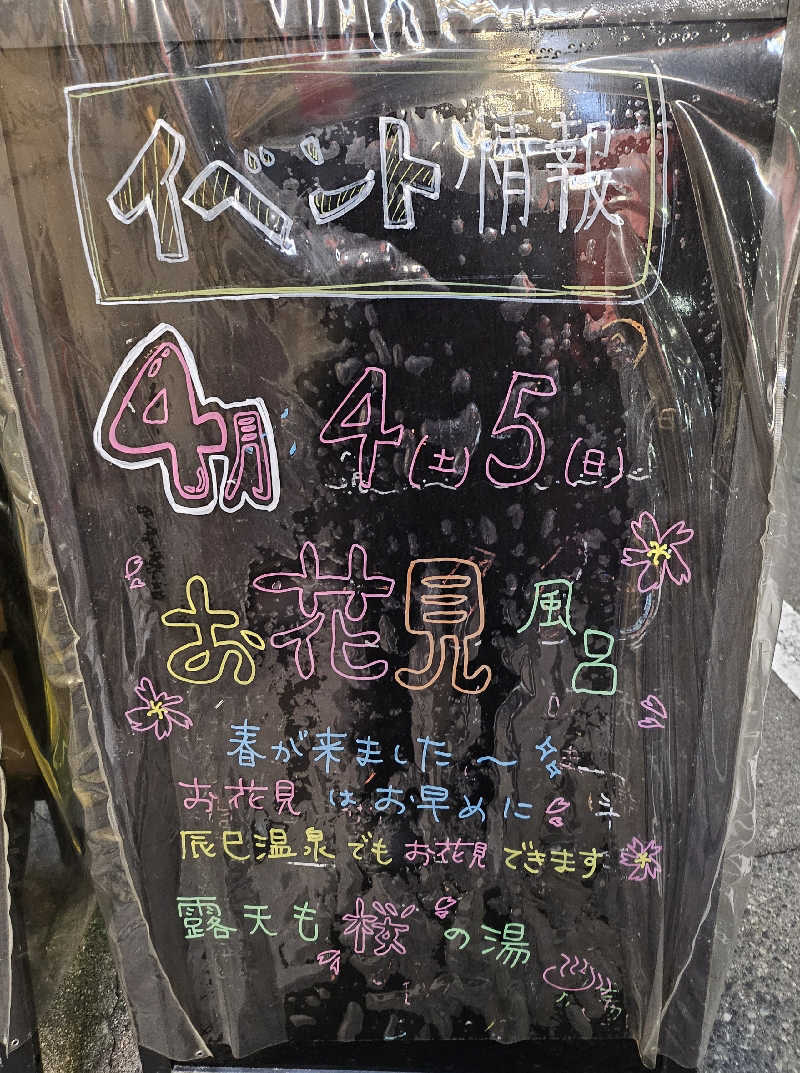 イベント情報
4月 4(土)5(日)
お花見風呂
春が来ました～
お花見はお早めに
辰巳温泉でもお花見できます
露天も桜の湯